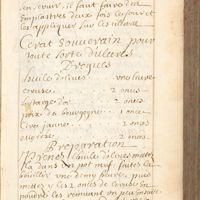 en, ouvr, il faut faire des
emplaitres deux fois le jour et
les appliquer sur les
Cerat Souverain pour
toute sorte dulceres
Drogues
huile dolives une livre
ceruse 2 onces
litarge dor 2 onces
poix de bourgogne 1 once
cire jaune 2 onces
2 onces
Preparation
Prenez lhuile dolives mettez
la dans un pot neuf faites la
bouillir une demy heure, puis
mettez y les 2 onces de ceruse en
poudre les remuant un